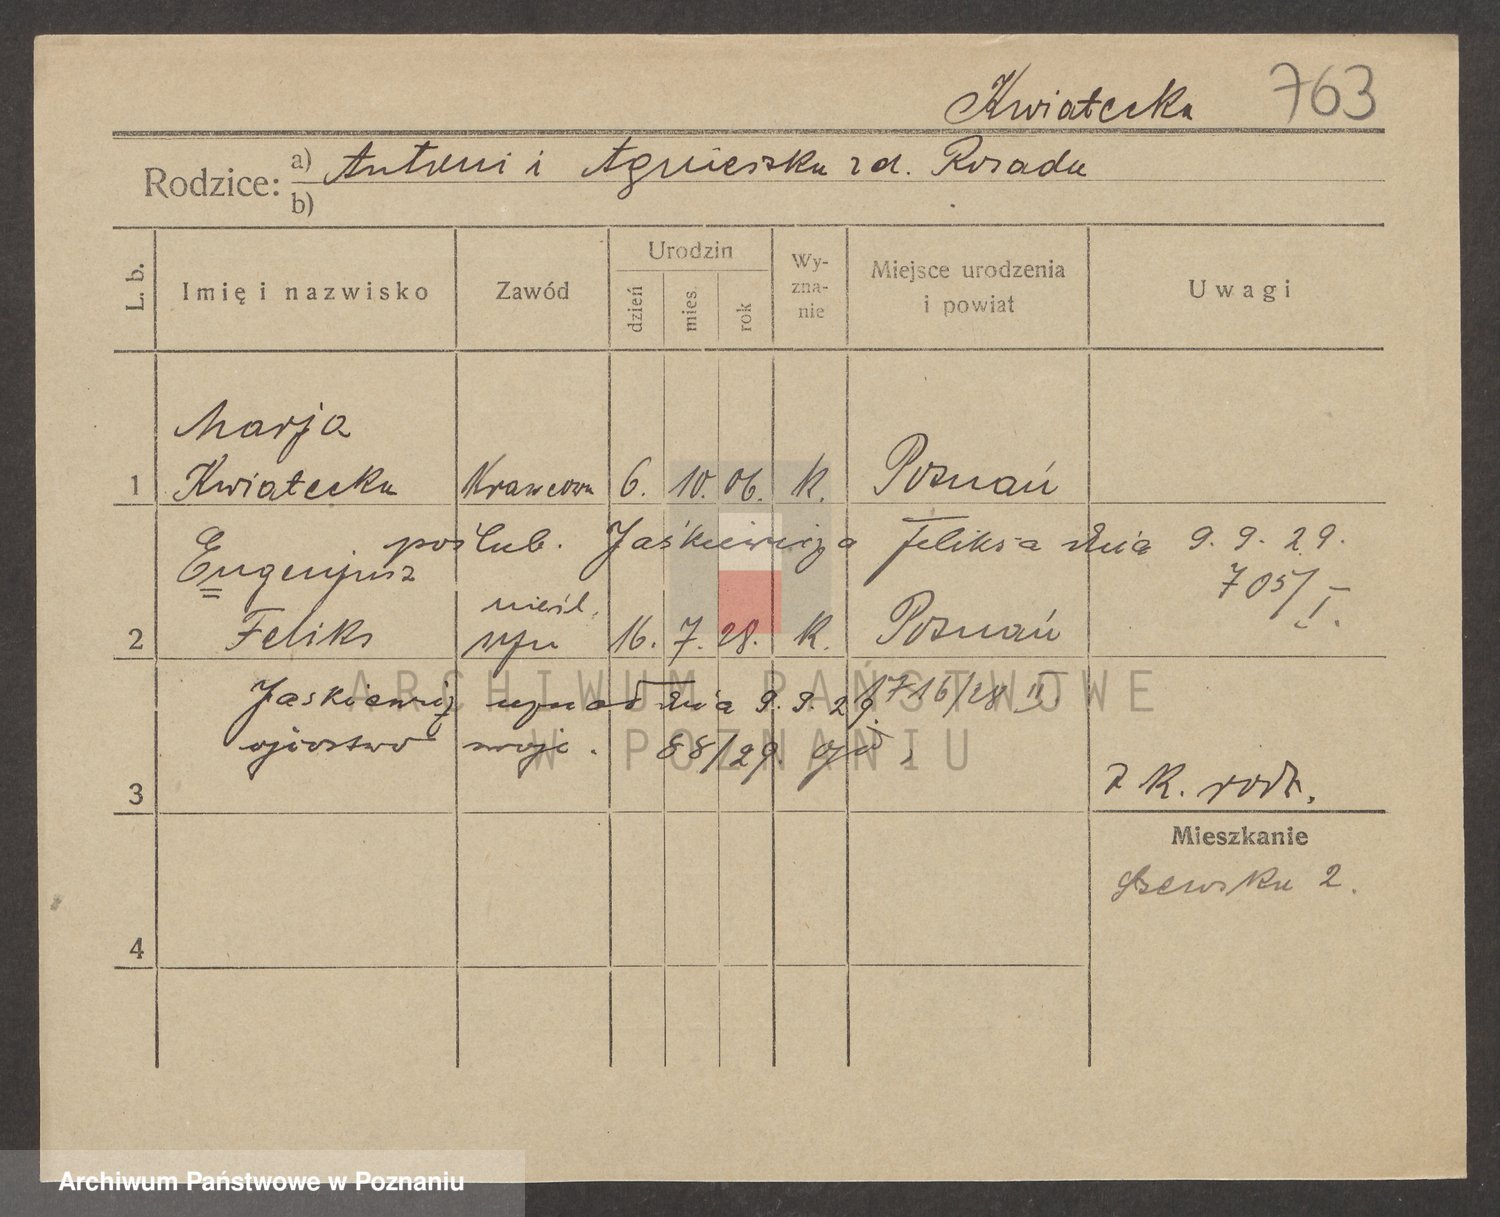 Kwiatecka 763
Rodzice: a) Antoni i Agnieszka zd. Rosada
b)
L. b.
Imię i nazwisko
Zawód
Urodzin
dzień
mies.
rok
Wy-
zna-
nie
Miejsce urodzenia
i powiat
Uwagi
Marja
1 Kwiatecka Krawcowa 6. 10. 06. K. Poznań
poślub. Jaśkiewicza Feliksa dnia 9. 9. 29.
Eugenjusz 705/I.
nieśl.
2 Feliks syn 16. 7. 28. K. Poznań
Jaskiewicz uznał dnia 9. 9. 29. 1716/28 II
ojcostwo swoje. 88/29
3 z K. rodz.
Mieszkanie
Szewska 2.
4
ARCHIWUM PAŃSTWOWE
W POZNANIU
Archiwum Państwowe w Poznaniu